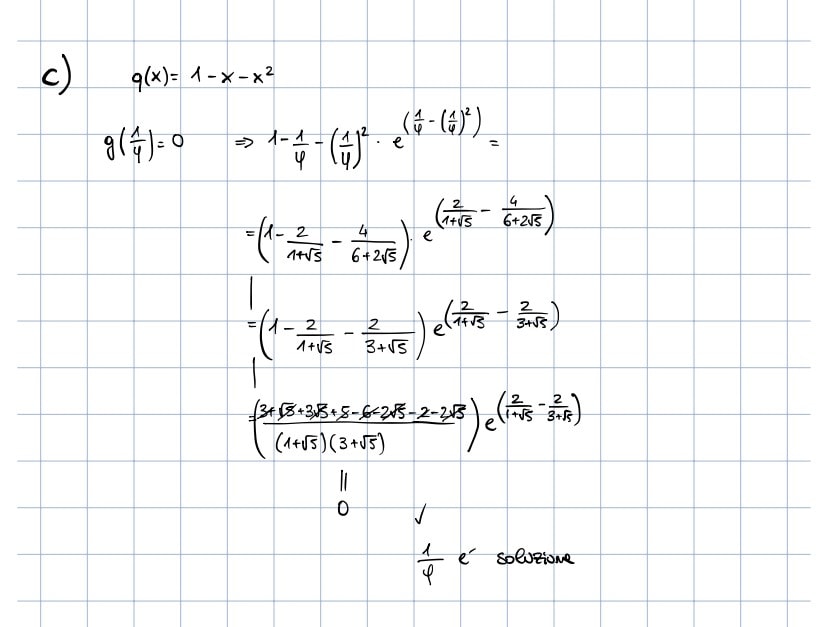 c) q(x)= 1-x-x²
g(1/φ)=0 ⇒ 1-1/φ-(1/φ)²·e^(1/φ-(1/φ)²) =
=(1-2/(1+√5)-4/(6+2√5))·e^(2/(1+√5)-4/(6+2√5))
=(1-2/(1+√5)-2/(3+√5))e^(2/(1+√5)-2/(3+√5))
=((3+√5+3√5+5-6-2√5-2-2√5)/((1+√5)(3+√5)))e^(2/(1+√5)-2/(3+√5))
||
0 ✓
1/φ e´ soluzione